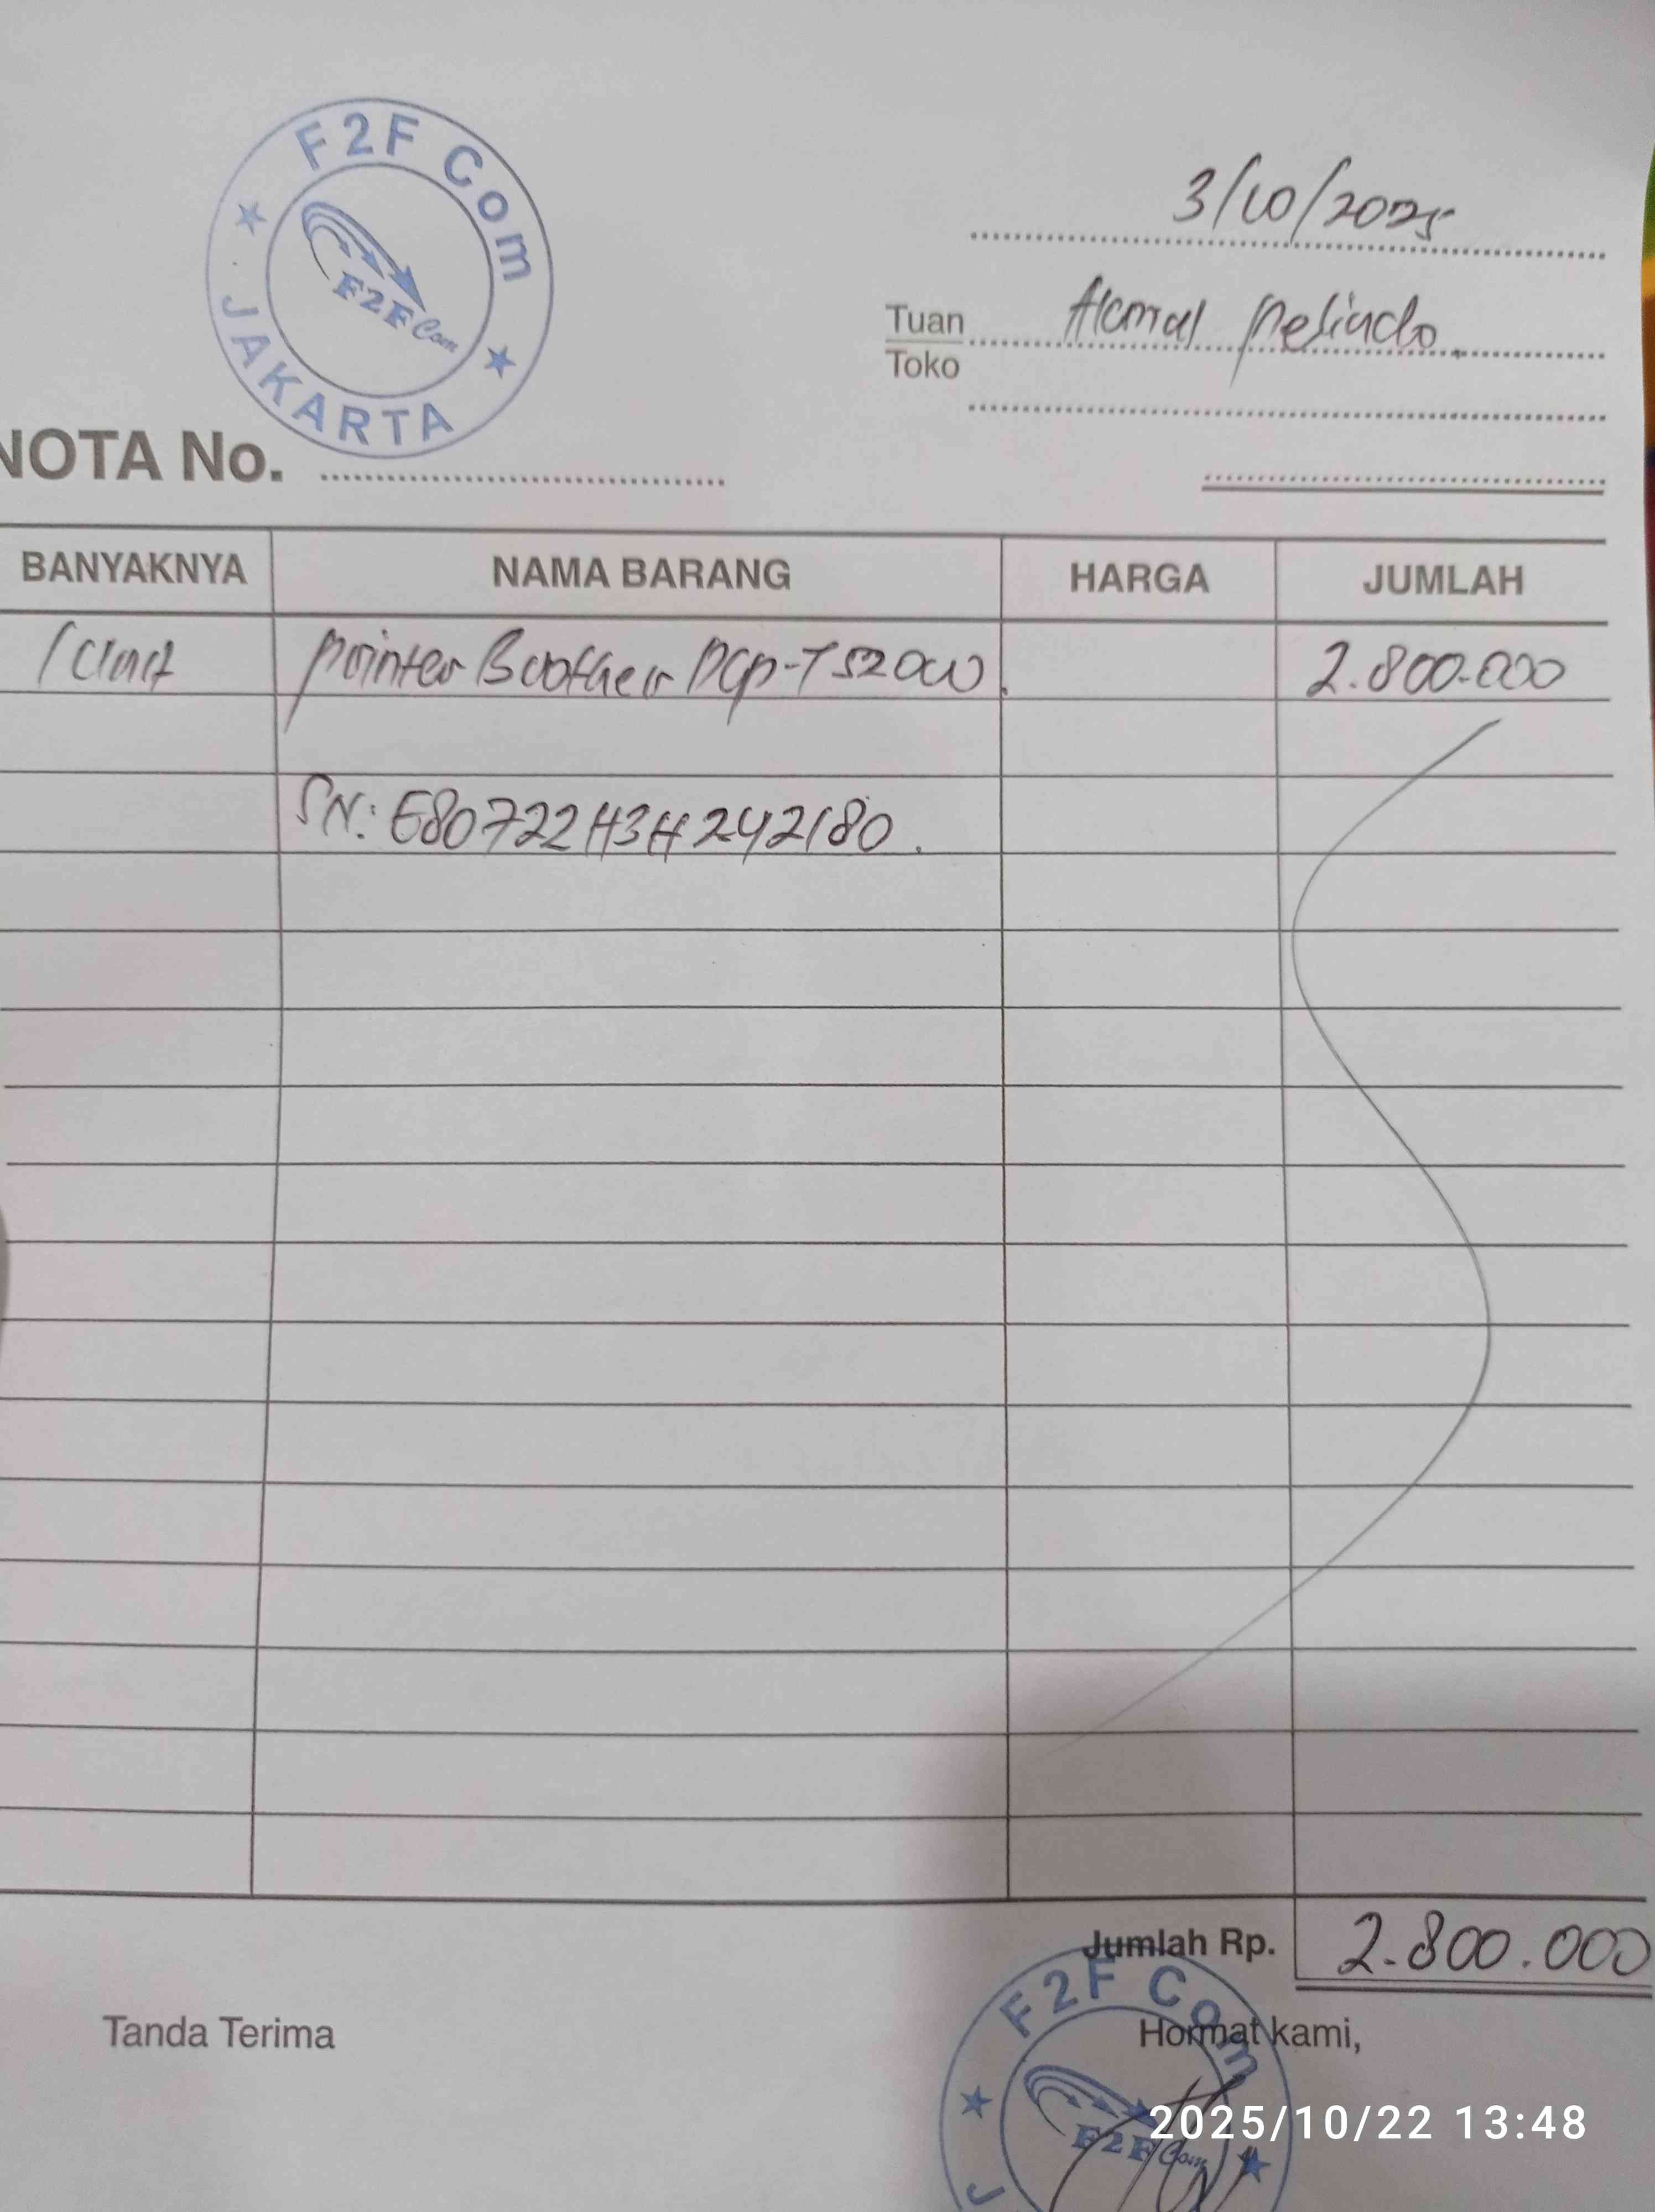 F2F Com
F2F Com
JAKARTA
3/10/2025
Tuan Akmal Pelindo.
Toko
NOTA No.
BANYAKNYA NAMA BARANG HARGA JUMLAH
1 Unit Printer Brother DCP-T520W. 2.800.000
SN: E80722H3H242180.
Jumlah Rp. 2.800.000
Tanda Terima Hormat kami,
F2F Com
F2F Com
J
2025/10/22 13:48